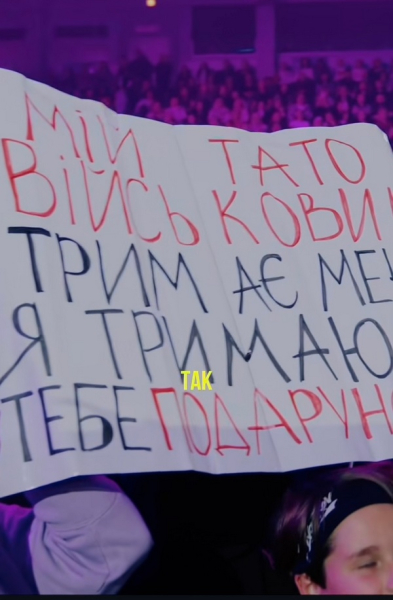 Мій ТАТО
ВІЙСЬКОВИ
ТРИМАЄ МЕ
Я ТРИМАЮ
ТЕБЕ ПОДАРУН
ТАК